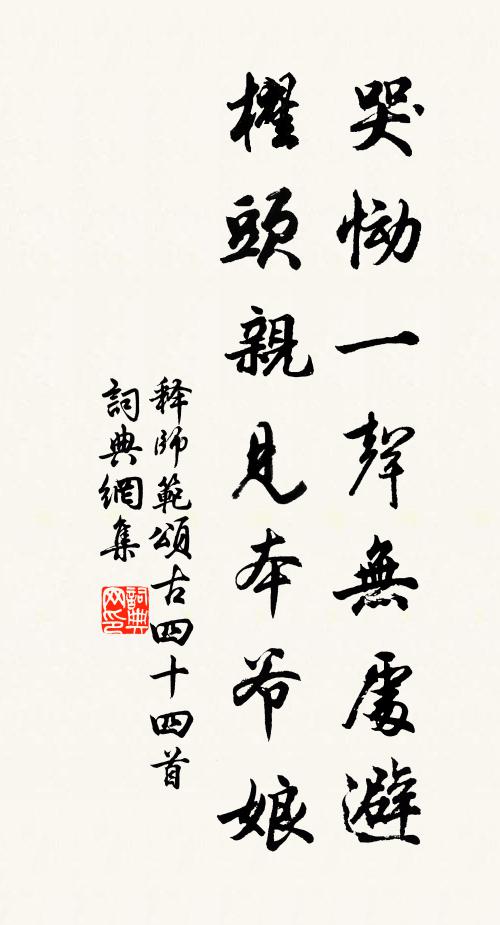 哭恸一聲無處避
櫂頭親見本爷娘
释師範頌古四十四首
詞典網集
詞典网印